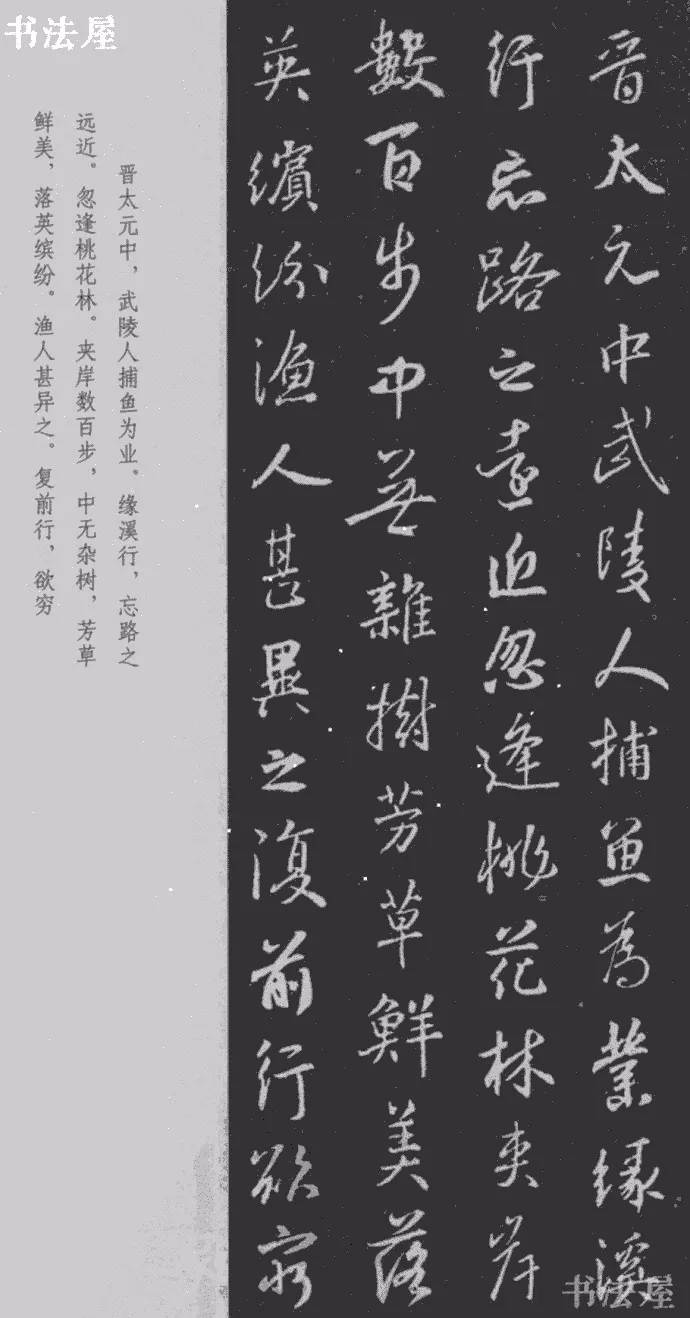 书法屋
晋太元中武陵人捕鱼为業缘溪
行忘路之遠近忽逢桃花林夹岸
數百步中無雜樹芳草鲜美落
英繽紛渔人甚異之復前行欲穷
晋太元中，武陵人捕鱼为业。缘溪行，忘路之
远近。忽逢桃花林。夹岸数百步，中无杂树，芳草
鲜美，落英缤纷。渔人甚异之。复前行，欲穷
书法屋